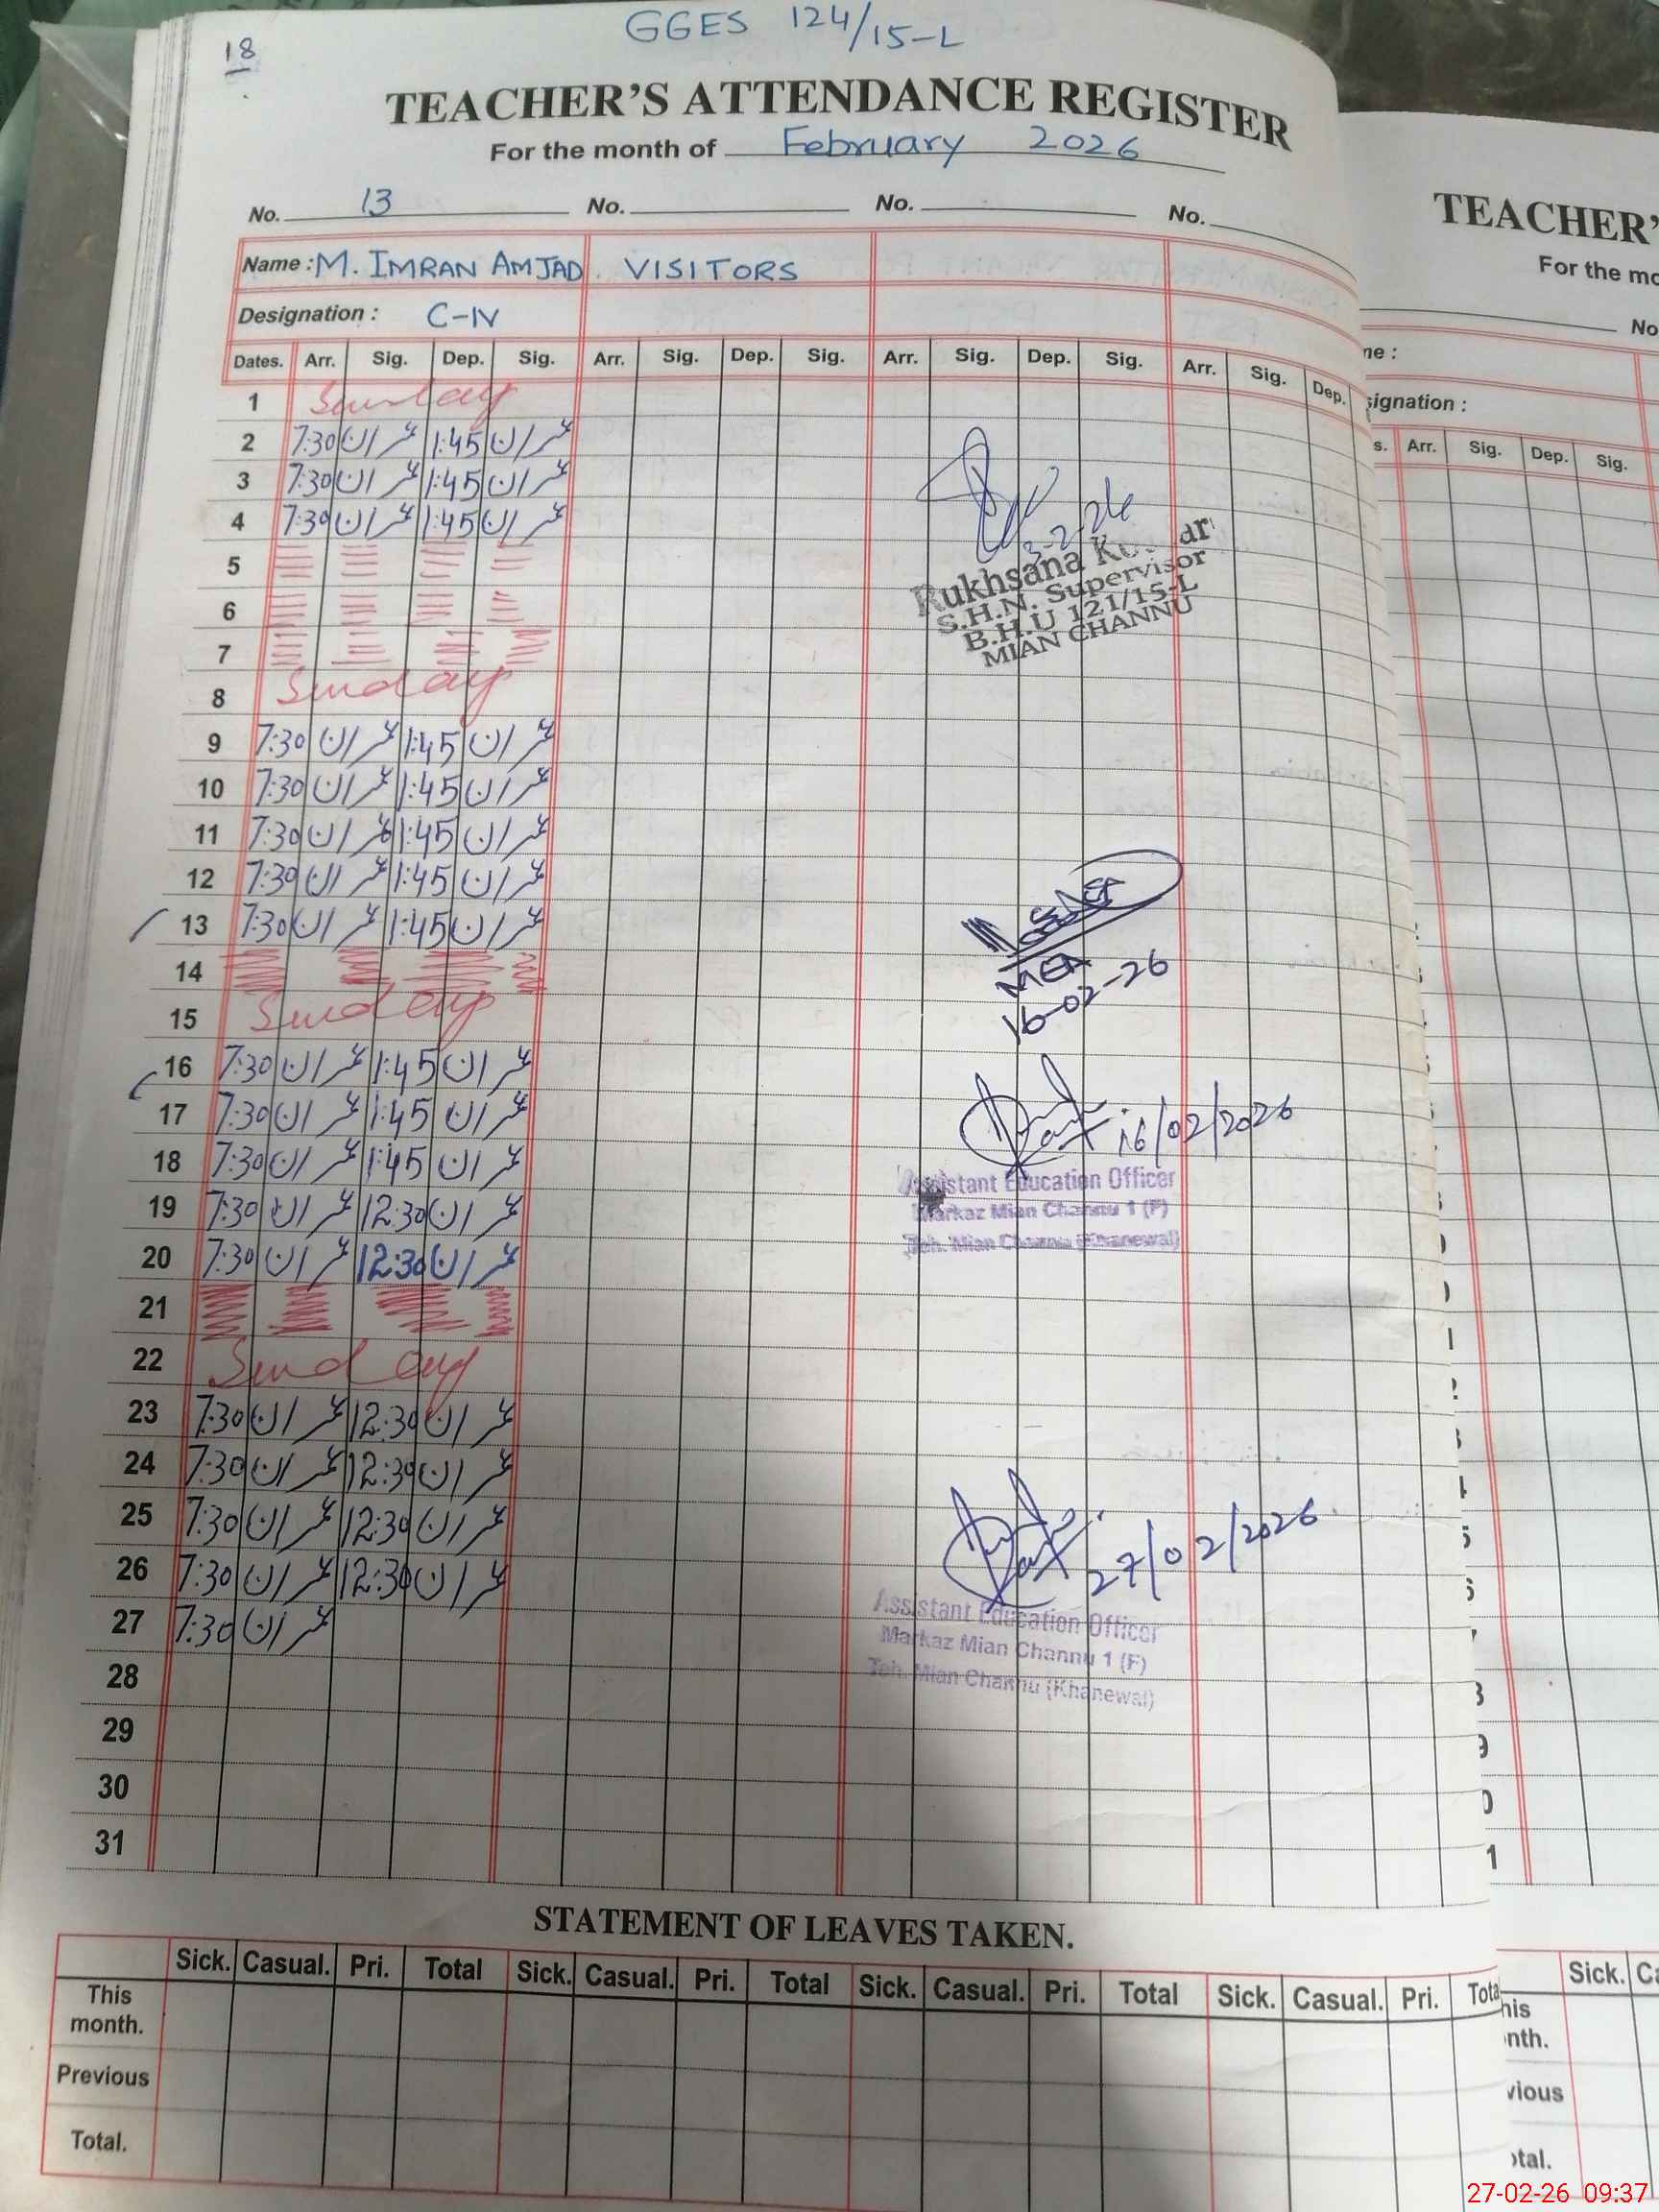 18
GGES 124/15-L
TEACHER'S ATTENDANCE REGISTER
For the month of February 2026
No. 13 No. No. No.
Name : M. IMRAN AMJAD. VISITORS
Designation : C-IV
Dates. Arr. Sig. Dep. Sig. Arr. Sig. Dep. Sig. Arr. Sig. Dep. Sig. Arr. Sig. Dep.
1 Sunday
2 7:30 عمران 1:45 عمران
3 7:30 عمران 1:45 عمران
4 7:30 عمران 1:45 عمران
5
6
7
8 Sunday
9 7:30 عمران 1:45 عمران
10 7:30 عمران 1:45 عمران
11 7:30 عمران 1:45 عمران
12 7:30 عمران 1:45 عمران
13 7:30 عمران 1:45 عمران
14
15 Sunday
16 7:30 عمران 1:45 عمران
17 7:30 عمران 1:45 عمران
18 7:30 عمران 1:45 عمران
19 7:30 عمران 12:30 عمران
20 7:30 عمران 12:30 عمران
21
22 Sunday
23 7:30 عمران 12:30 عمران
24 7:30 عمران 12:30 عمران
25 7:30 عمران 12:30 عمران
26 7:30 عمران 12:30 عمران
27 7:30 عمران
28
29
30
31
3-2-26
Rukhsana
S.H.N. Supervisor
B.H.U 121/15-L
MIAN CHANNU
MEA
16-02-26
16/02/2026
Assistant Education Officer
Markaz Mian Channu 1 (F)
Teh. Mian Channu (Khanewal)
27/02/2026
Assistant Education Officer
Markaz Mian Channu 1 (F)
Teh. Mian Channu (Khanewal)
STATEMENT OF LEAVES TAKEN.
Sick. Casual. Pri. Total Sick. Casual. Pri. Total Sick. Casual. Pri. Total Sick. Casual. Pri. Tota
This month.
Previous
Total.
TEACHER'
For the mo
No
ne :
signation :
s. Arr. Sig. Dep. Sig.
Sick. Ca
his
nth.
vious
otal.
27-02-26 09:37